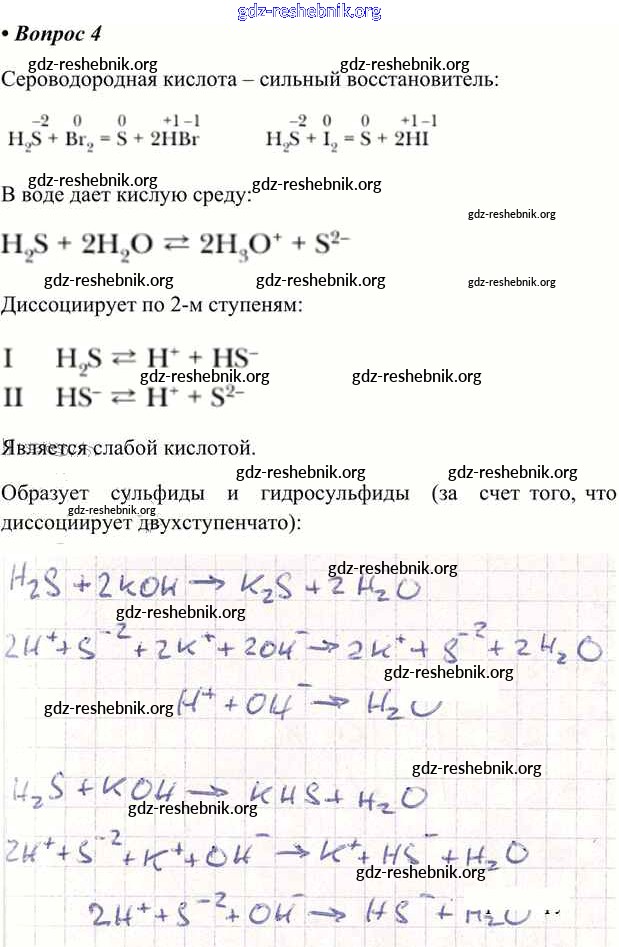 gdz-reshebnik.org
• Вопрос 4
gdz-reshebnik.org gdz-reshebnik.org
Сероводородная кислота – сильный восстановитель:
–2 0 0 +1 –1 –2 0 0 +1 –1
H₂S + Br₂ = S + 2HBr H₂S + I₂ = S + 2HI
gdz-reshebnik.org gdz-reshebnik.org
В воде дает кислую среду:
gdz-reshebnik.org
H₂S + 2H₂O ⇄ 2H₃O⁺ + S²⁻
gdz-reshebnik.org gdz-reshebnik.org gdz-reshebnik.org
Диссоциирует по 2-м ступеням:
I H₂S ⇄ H⁺ + HS⁻
gdz-reshebnik.org gdz-reshebnik.org
II HS⁻ ⇄ H⁺ + S²⁻
Является слабой кислотой.
gdz-reshebnik.org gdz-reshebnik.org
Образует сульфиды и гидросульфиды (за счет того, что
gdz-reshebnik.org
диссоциирует двухступенчато):
gdz-reshebnik.org
H₂S + 2KOH → K₂S + 2H₂O
gdz-reshebnik.org
2H⁺ + S⁻² + 2K⁺ + 2OH⁻ → 2K⁺ + S⁻² + 2H₂O
gdz-reshebnik.org
gdz-reshebnik.org
H⁺ + OH⁻ → H₂O
gdz-reshebnik.org
H₂S + KOH → KHS + H₂O
gdz-reshebnik.org
2H⁺ + S⁻² + K⁺ + OH⁻ → K⁺ + HS⁻ + H₂O
gdz-reshebnik.org
2H⁺ + S⁻² + OH⁻ → HS⁻ + H₂O